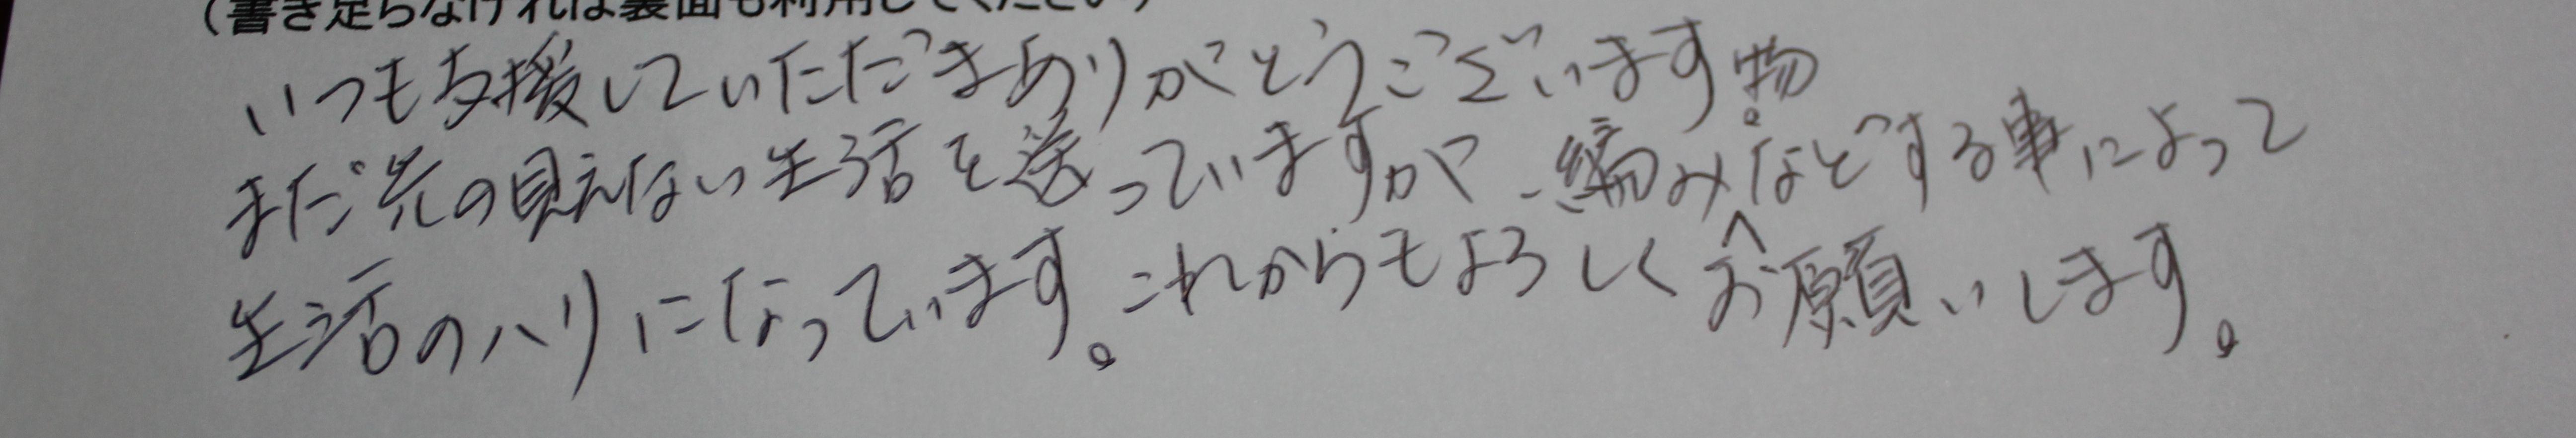 （書き足らなければ裏面も利用してください）
いつも支援していただきありがとうございます。
まだ先の見えない生活を送っていますが、編み物などする事によって
生活のハリになっています。これからもよろしくお願いします。